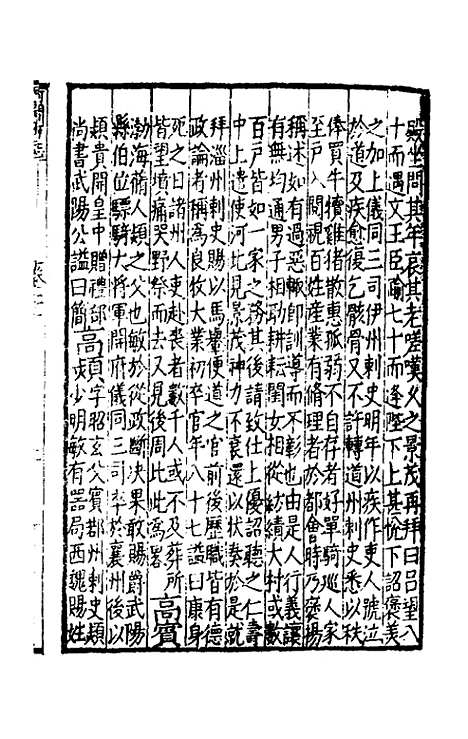 殿坐問其年哀其老嗟嘆久之景茂再拜曰呂望八
十而遇文王臣踰七十而逢陛下上甚恱下詔褒美
之加上儀同三司伊州刺史明年以疾作吏人號泣
於道及疾愈復乞骸骨又不許轉道州刺史悉以秩
俸買牛犢雞猪散惠孤弱不自存者好單騎巡人家
至戸入閱視百姓産業有脩理者於都會時乃襃揚
稱述如有過惡輙即訓導而不彰也由是人行義讓
有無均通男子相助耕耘婦女相從紡績大村或數
百戸皆如一家之務其後請致仕上優詔聽之仁壽
中上遣使河北見景茂神力不衰還以狀奏於是就
拜淄州刺史賜以馬轝便道之官前後歷職皆有德
政論者稱爲良牧大業初卒官年八十七謚曰康身
死之日諸州人吏赴喪者數千人或不及葬所
皆望墳痛哭野祭而去又見後周此此爲畧 高賓
渤海蓚人類之父也敏於從政斷決果敢賜爵武陽
縣伯位驃騎大將軍開府儀同三司卒於襄州後以
熲貴開皇中贈禮部 高熲字昭玄父賓鄀州刺史熲
尚書武陽公謚曰簡 少明敏有器局西魏賜姓